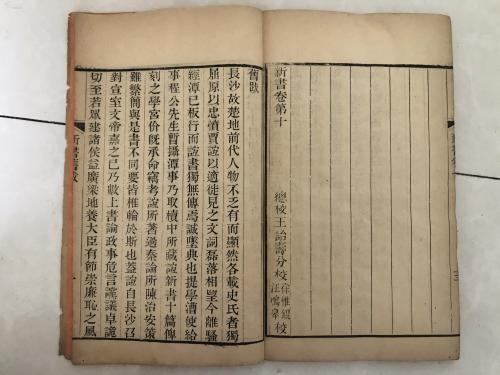 新書卷第十
總校王詒壽分校
汪鳴皋
校
舊跋
長沙故楚地前代人物不乏有而顯然各載史氏者獨
屈原以忠憤賈誼以適徙見之文詞磊落相望今離騷
經潭已板行而誼書獨無傳焉誠墜典也提學漕使給
事程公先生暫攝潭事乃取櫝中所藏誼新書十篇俾
刻之學宮价旣承命竊考誼所著過秦論所陳治安策
雖繁簡與是書不同要皆椎輪於斯也蓋誼自長沙召
對宣室文帝嘉之已乃數上書論政事危言讜議卓詭
切至若眾建諸侯益廣梁地養大臣有節崇廉恥之風
新書舊跋
三